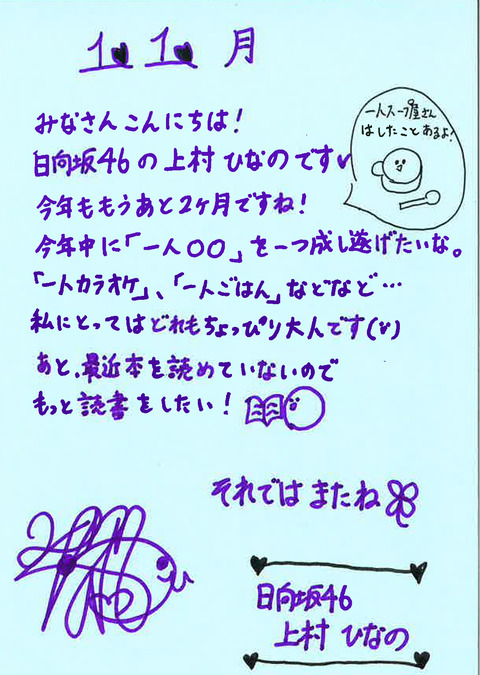 11月
みなさんこんにちは!
日向坂46の上村ひなのです♥
一人スープ屋さん
はしたことあるよ!
今年ももうあと2ヶ月ですね!
今年中に「一人〇〇」を一つ成し遂げたいな。
「一人カラオケ」、「一人ごはん」などなど…
私にとってはどれもちょっぴり大人です(v)
あと、最近本を読めていないので
もっと読書をしたい!
それではまたね
日向坂46
上村ひなの